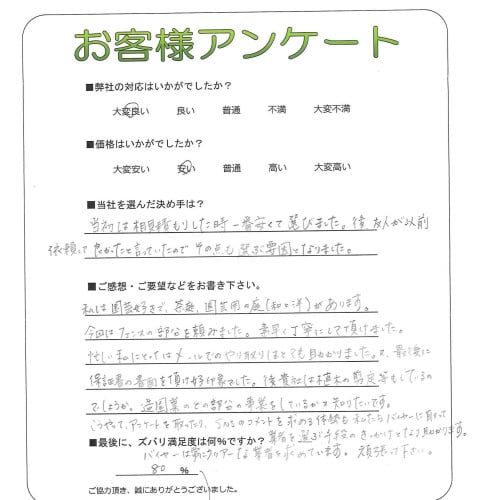 お客様アンケート
■弊社の対応はいかがでしたか？
大変良い 良い 普通 不満 大変不満
■価格はいかがでしたか？
大変安い 安い 普通 高い 大変高い
■当社を選んだ決め手は？
当初は相見積もりした時一番安くて選びました。後、友人が以前
依頼して良かったと言っていたのでその点も選ぶ要因となりました。
■ご感想・ご要望などをお書き下さい。
私は園芸好きで、茶庭、園芸用の庭(和と洋)があります。
今回はフェンスの部分を頼みました。素早く丁寧にして頂けました。
忙しい私にとってはメールでのやり取りはとても助かりました。最後に
保証書の書面を頂け好印象でした。後貴社は植木の剪定等もしているの
でしょうか。造園業のどの部分の事業をしているか知りたいです。
こうやってアンケートを取ったり、SNSのコメントを求める体勢も私たちバイヤーに取って
■最後に、ズバリ満足度は何％ですか？
業者を選ぶ手段のきっかけとなり助かります。
バイヤーは常にクリアーな業者を求めています。頑張って下さい。
80 ％
ご協力頂き、誠にありがとうございました。